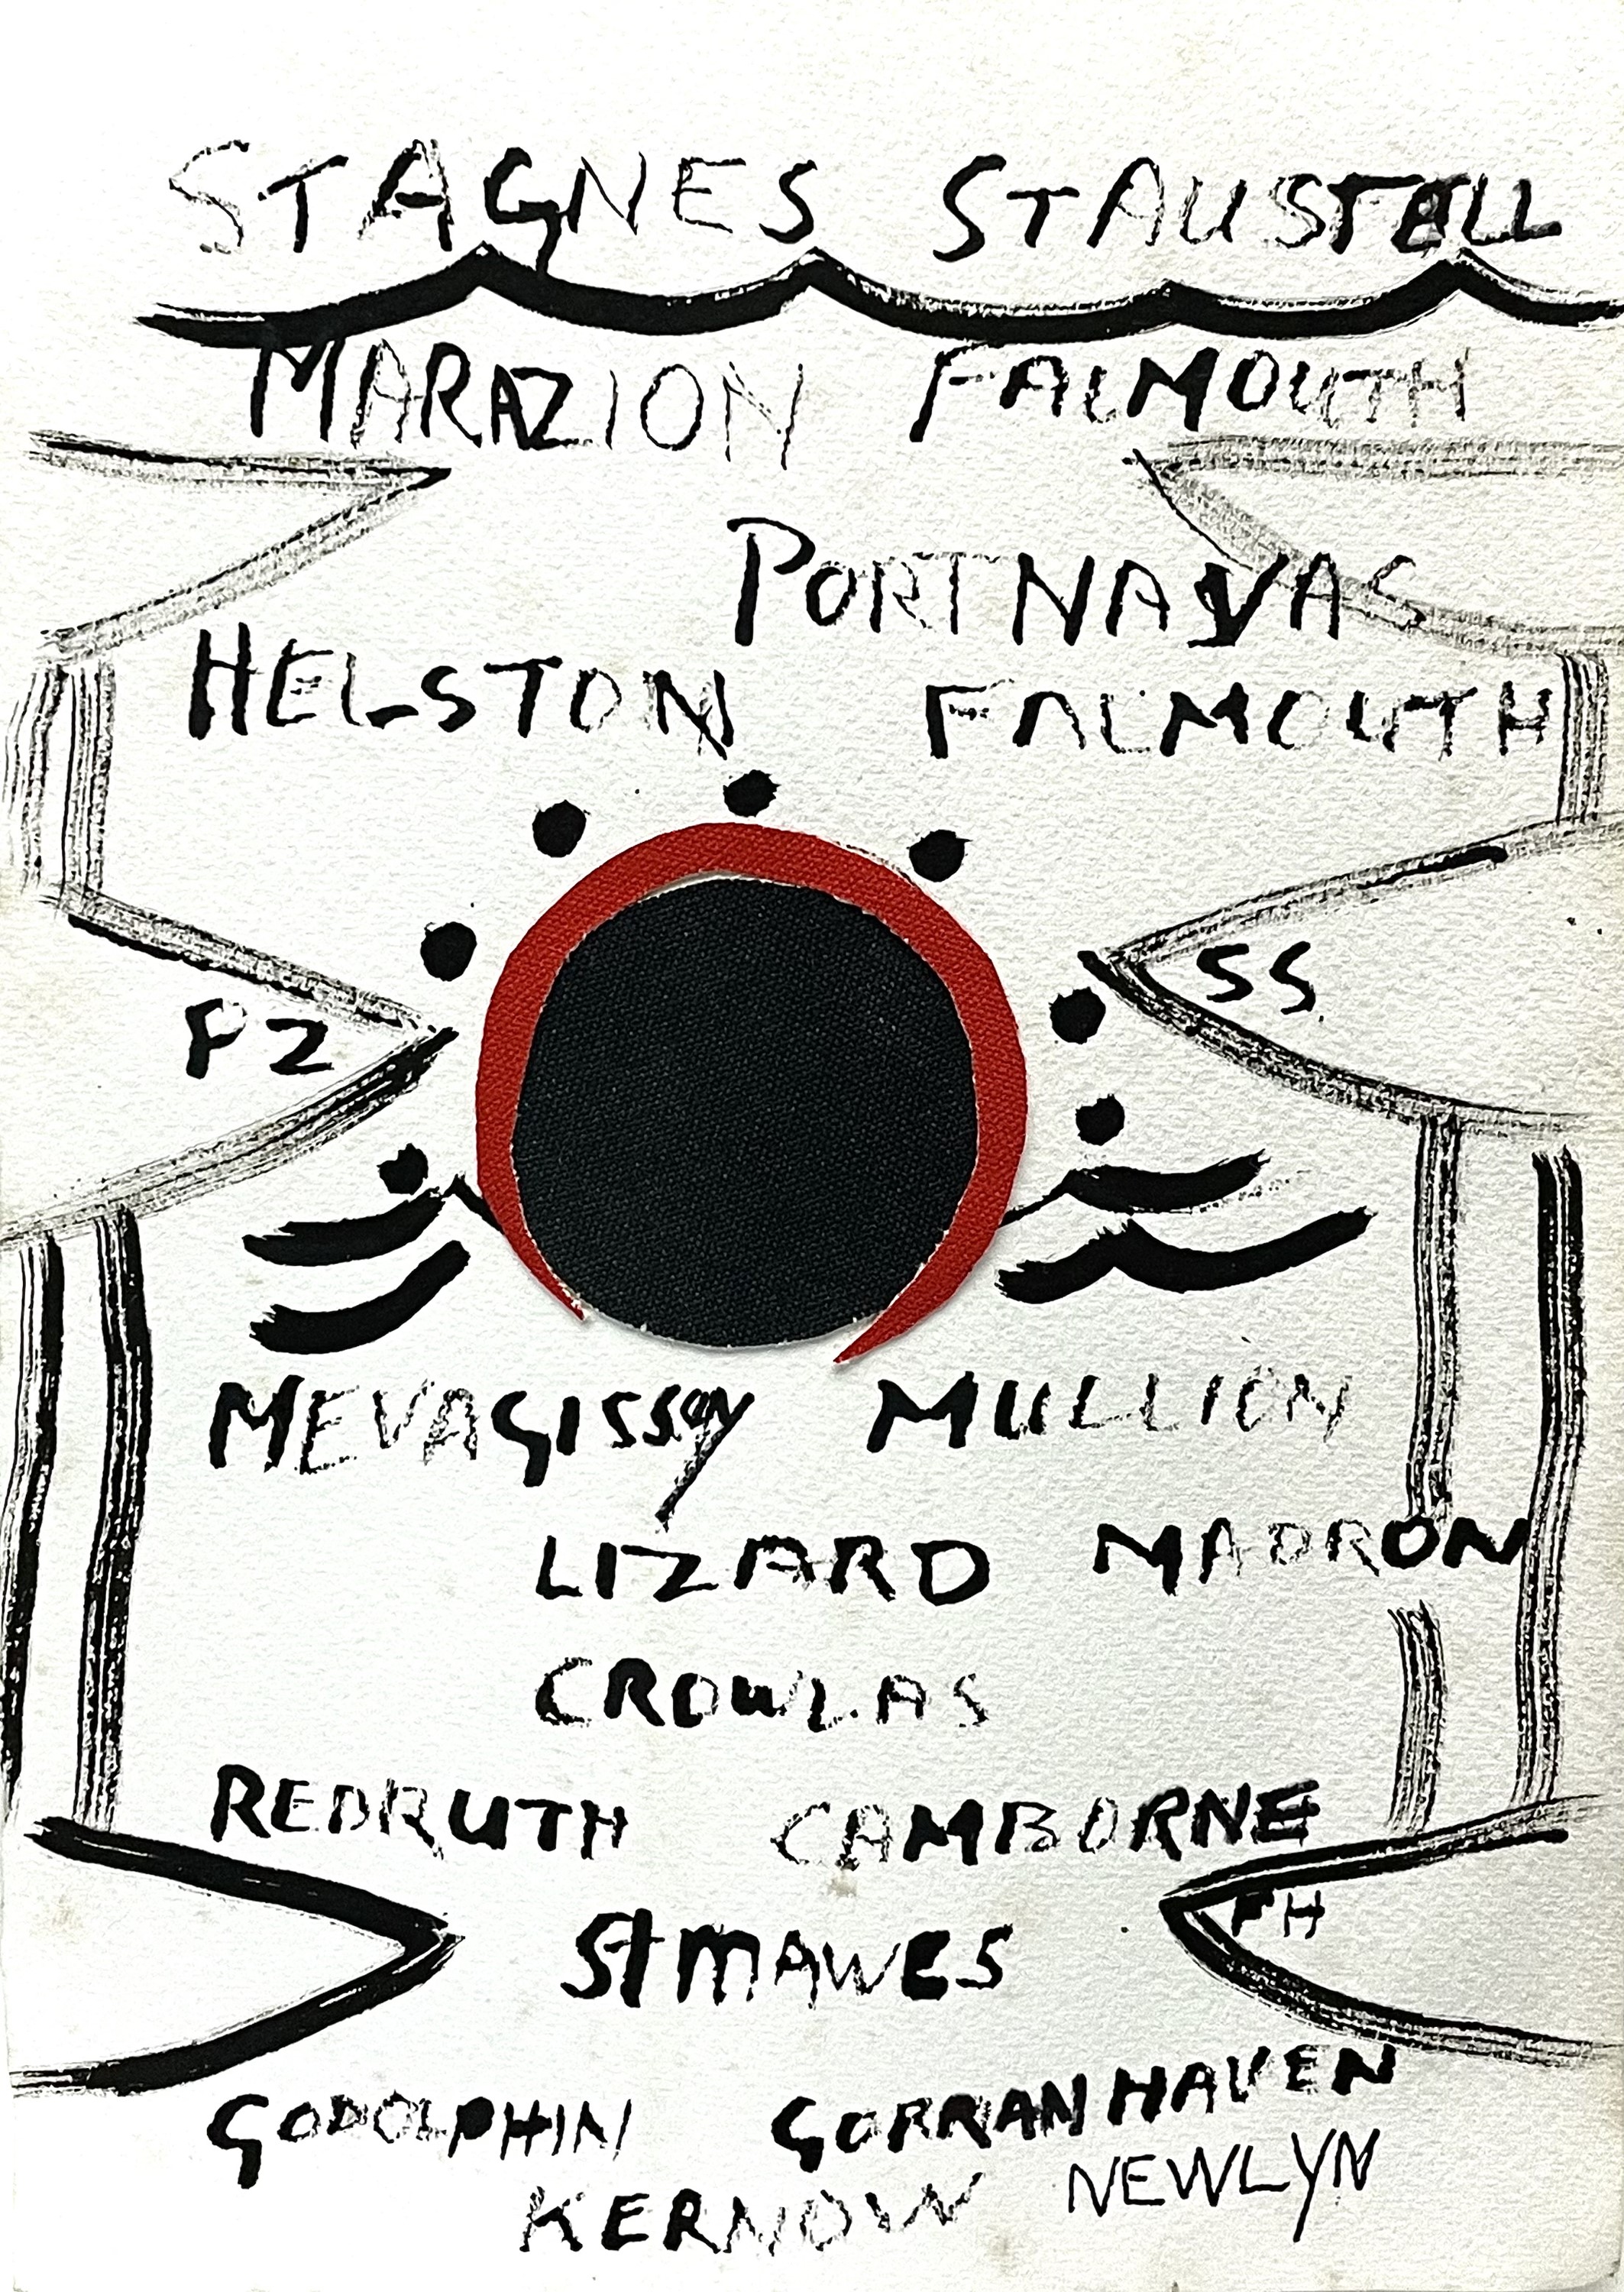 STAGNES STAUSTELL
MARAZION FALMOUTH
PORTNAVAS
HELSTON FALMOUTH
SS.
PZ
MEVAGISSEY MULLION
LIZARD MADRON
CROWLAS
REDRUTH CAMBORNE
FH
St MAWES
GODOLPHIN GORRAN HAVEN
KERNOW NEWLYN